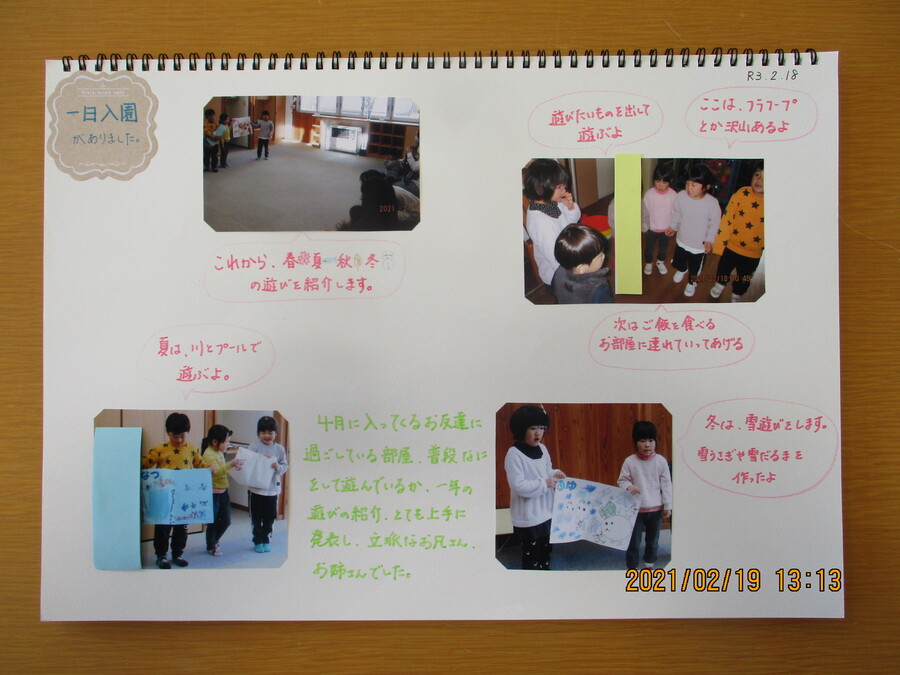 R3.2.18
一日入園
がありました。
これから、春夏秋冬
の遊びを紹介します。
遊びたいものを出して
遊ぶよ
ここは、フラフープ
とか沢山あるよ
次はご飯を食べる
お部屋に連れていってあげる
夏は、川とプールで
遊ぶよ。
なつ
4月に入ってくるお友達に
過ごしている部屋、普段なに
をして遊んでいるか、一年の
遊びの紹介、とても上手に
発表し、立派なお兄さん、
お姉さんでした。
ふゆ
冬は、雪遊びをします。
雪うさぎや雪だるまを
作ったよ
2021/02/19 13:13